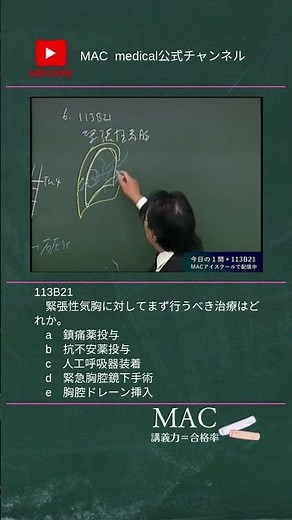 MAC medical公式チャンネル
6. 113B21
緊張性気胸
今日の1問・113B21
MACアイスクールで配信中
113B21
緊張性気胸に対してまず行うべき治療はど
れか。
a 鎮痛薬投与
b 抗不安薬投与
c 人工呼吸器装着
d 緊急胸腔鏡下手術
e 胸腔ドレーン挿入
MAC
講義力＝合格率